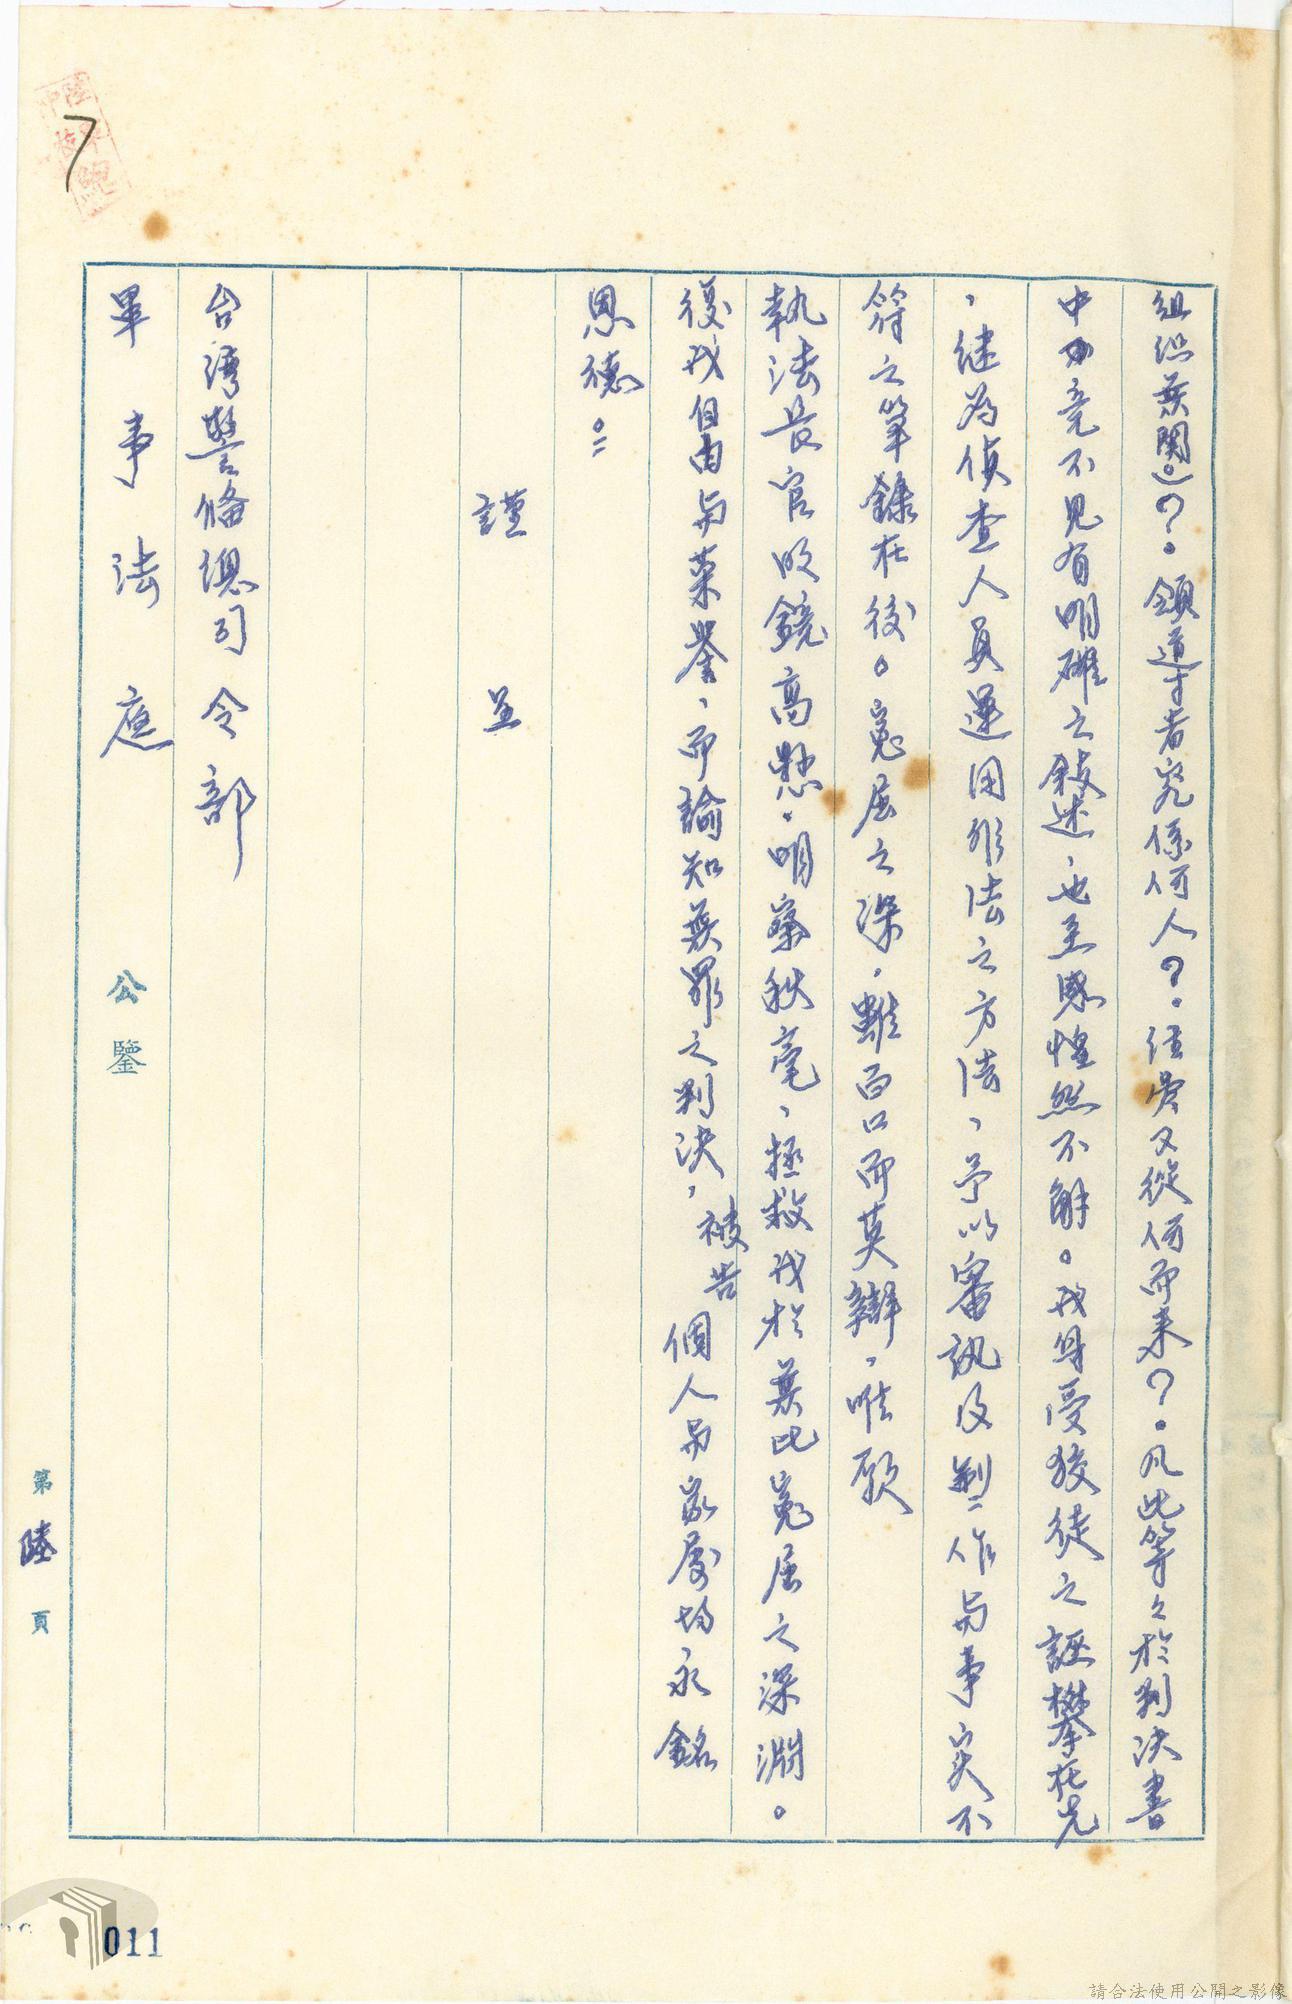 組織無関。)？。領導者究係何人？。經費又從何而来？。凡此等々於判决書
中竟不見有明確之敍述，也至感惶然不解。我身受狡徒之誣攀在先
，继為偵查人員運用非法之方法，予以審訊及制作与事实不
符之筆錄在後。冤屈之深，雖百口而莫辯，唯願
執法長官明鏡高懸，明察秋毫，拯救我於無比冤屈之深淵。
復我自由与荣譽，而諭知無罪之判决，被告個人与家屬均永銘
恩德。
謹 呈
台灣警俻總司令部
軍事法庭 公鑒
第陸頁
7
011
請合法使用公開之影像